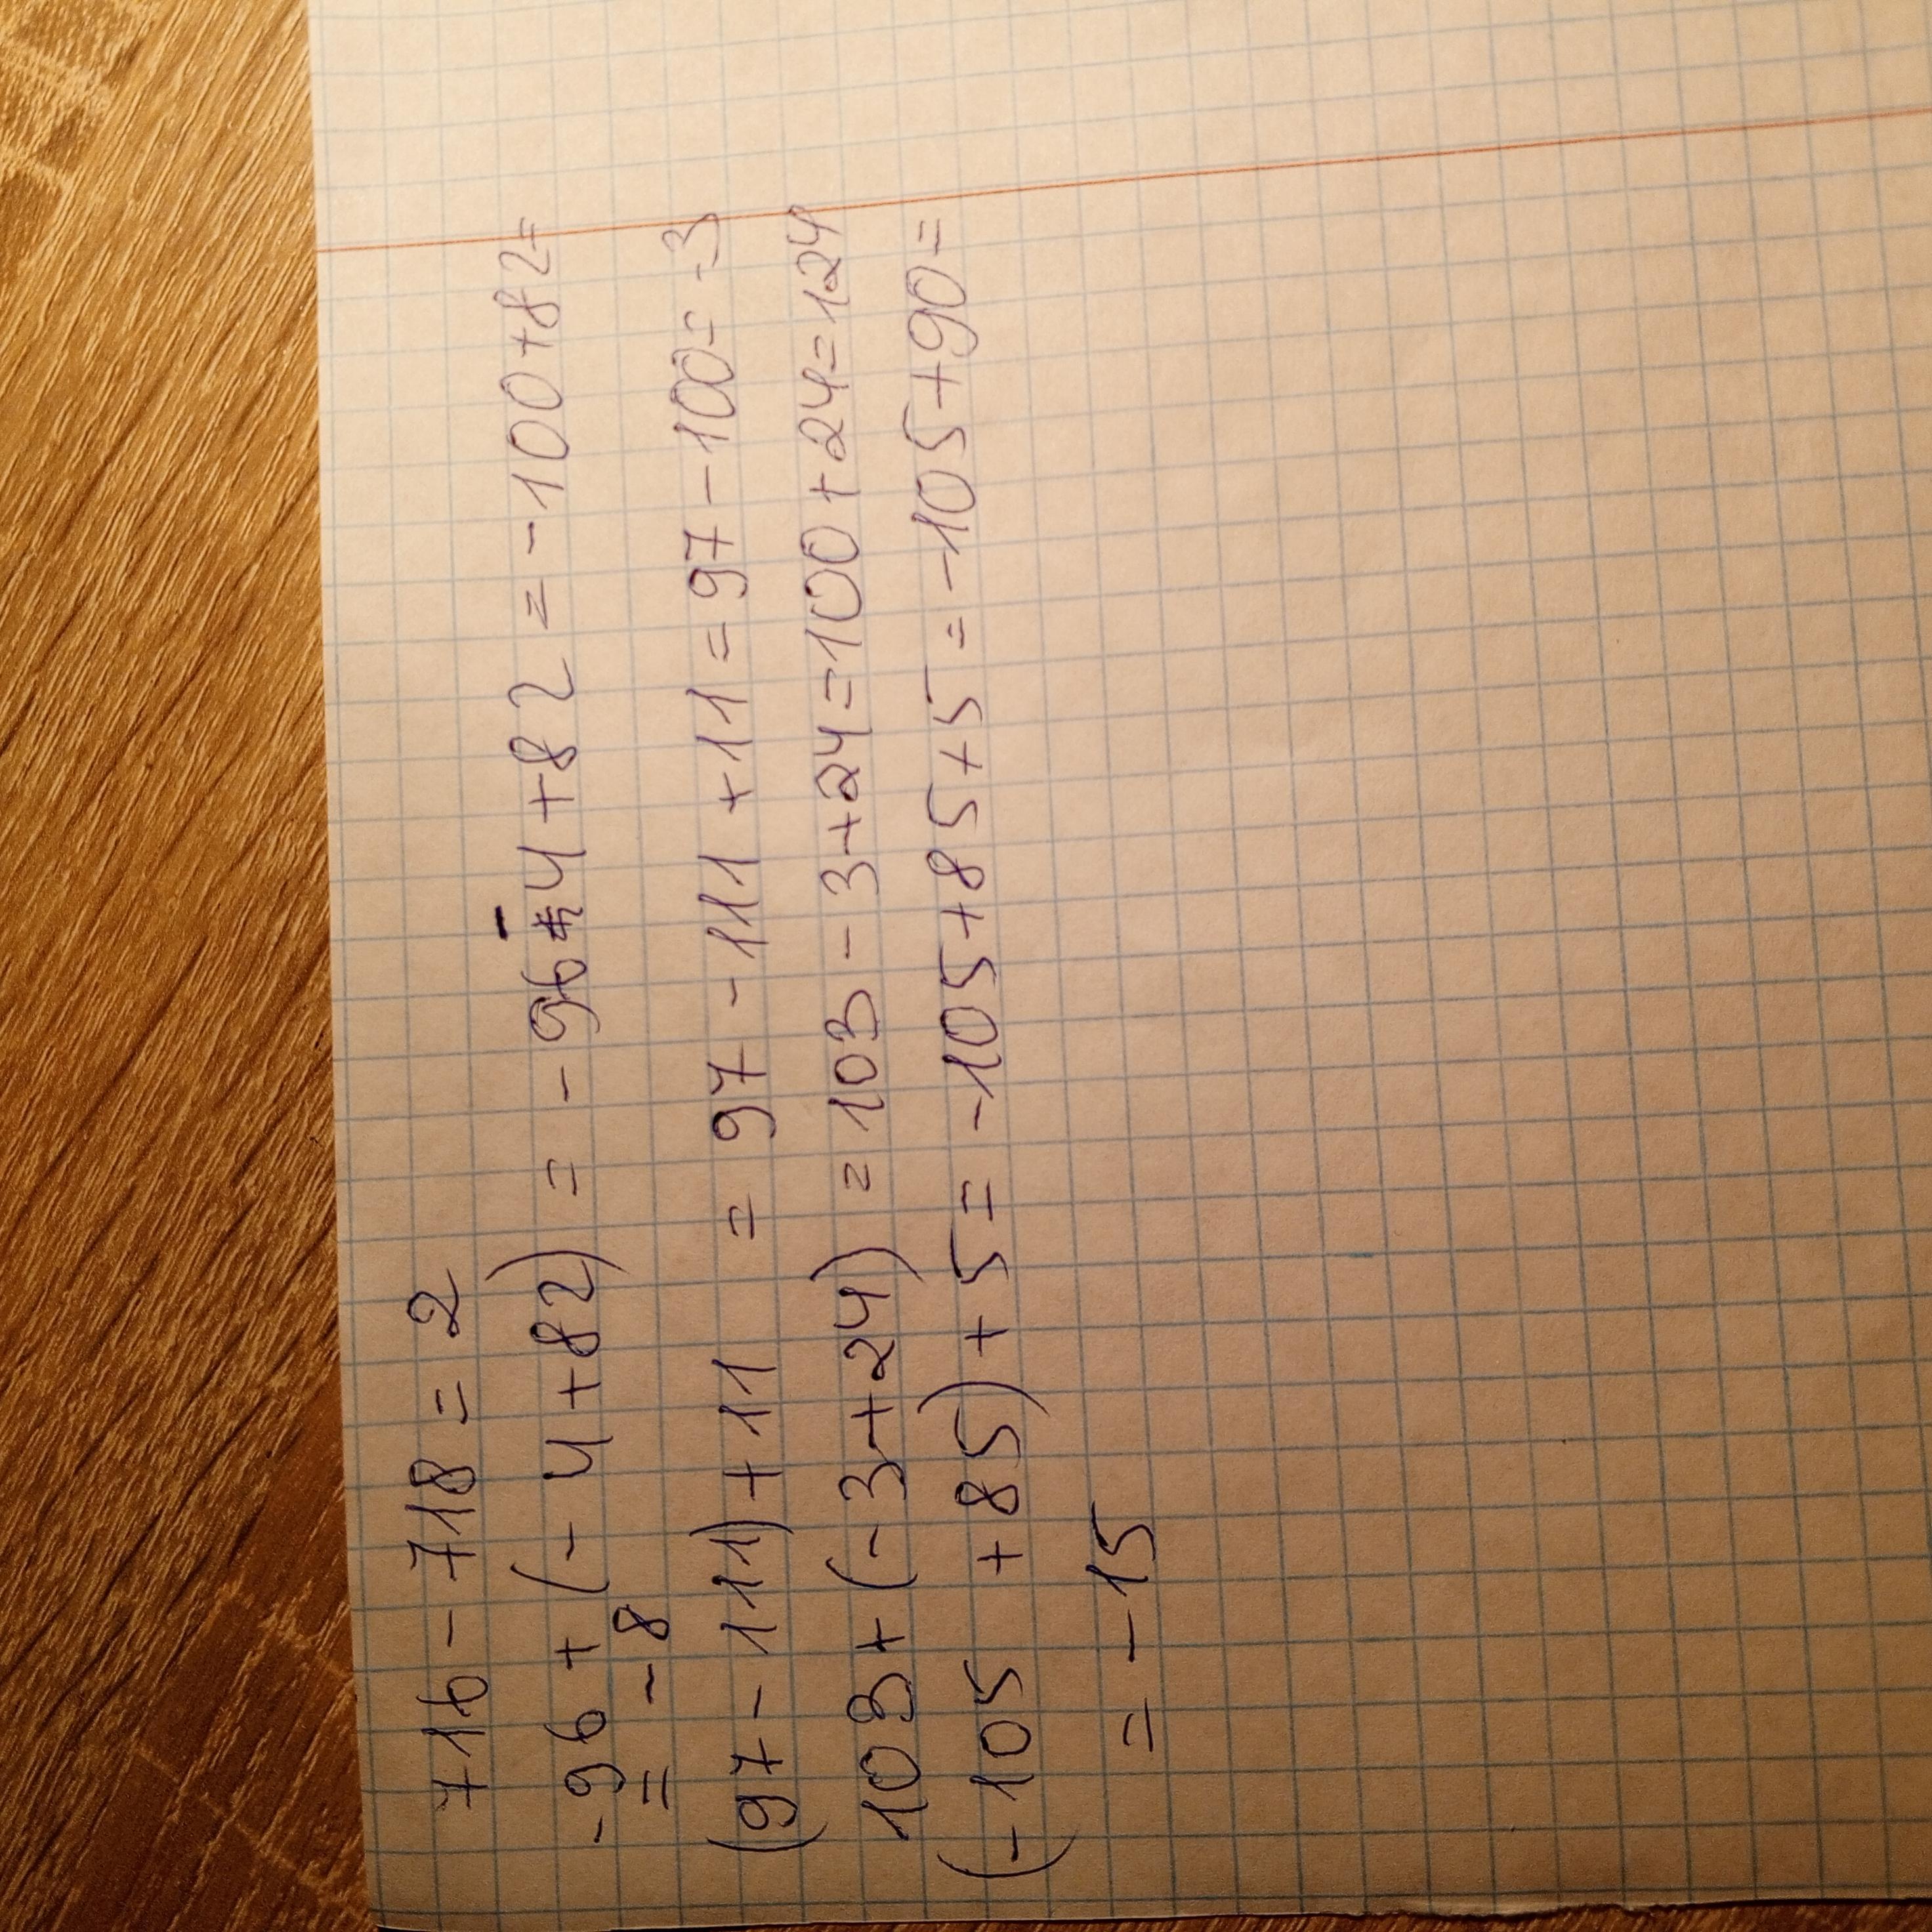 716 - 718 = 2
-96 + (- 4 + 82) = - 96 - 4 + 82 = - 100 + 82 =
= - 8
(97 - 111) + 11 = 97 - 111 + 11 = 97 - 100 = -3
103 + (- 3 + 24) = 103 - 3 + 24 = 100 + 24 = 124
(- 105 + 85) + 5 = - 105 + 85 + 5 = - 105 + 90 =
= - 15